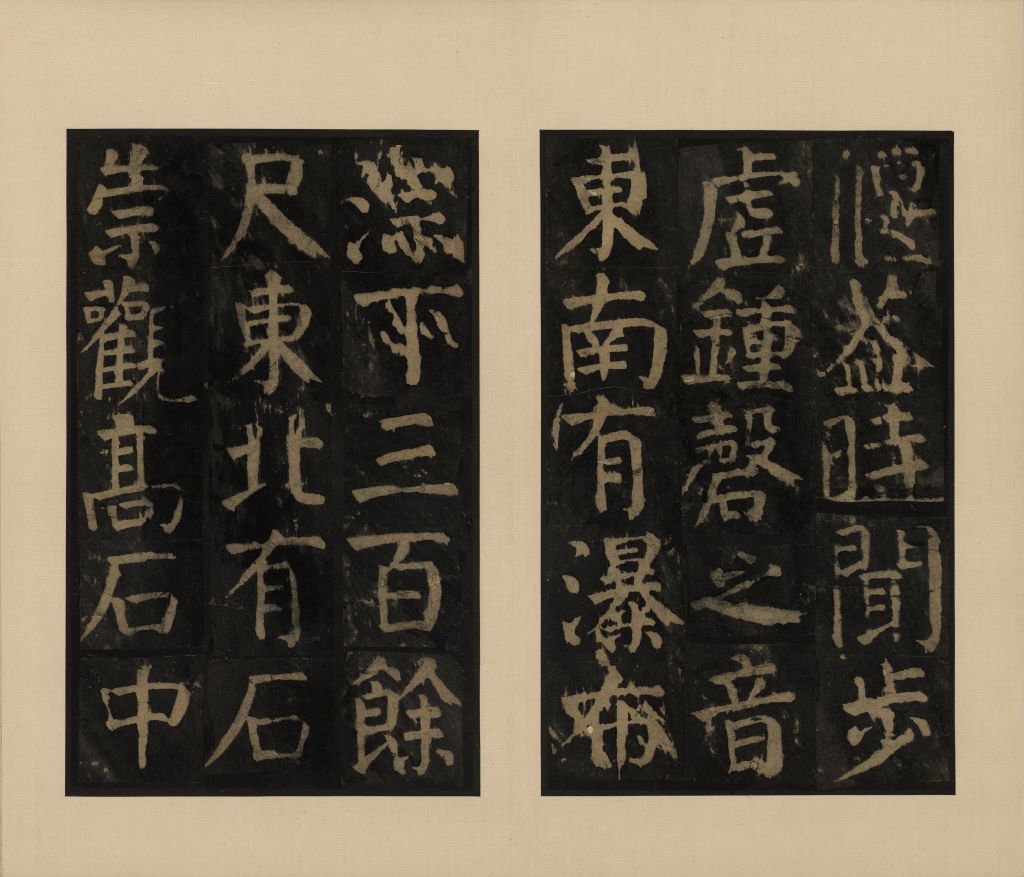 偃蓋時聞步
虛鍾磬之音
東南有瀑布
淙下三百餘
尺東北有石
崇觀高石中